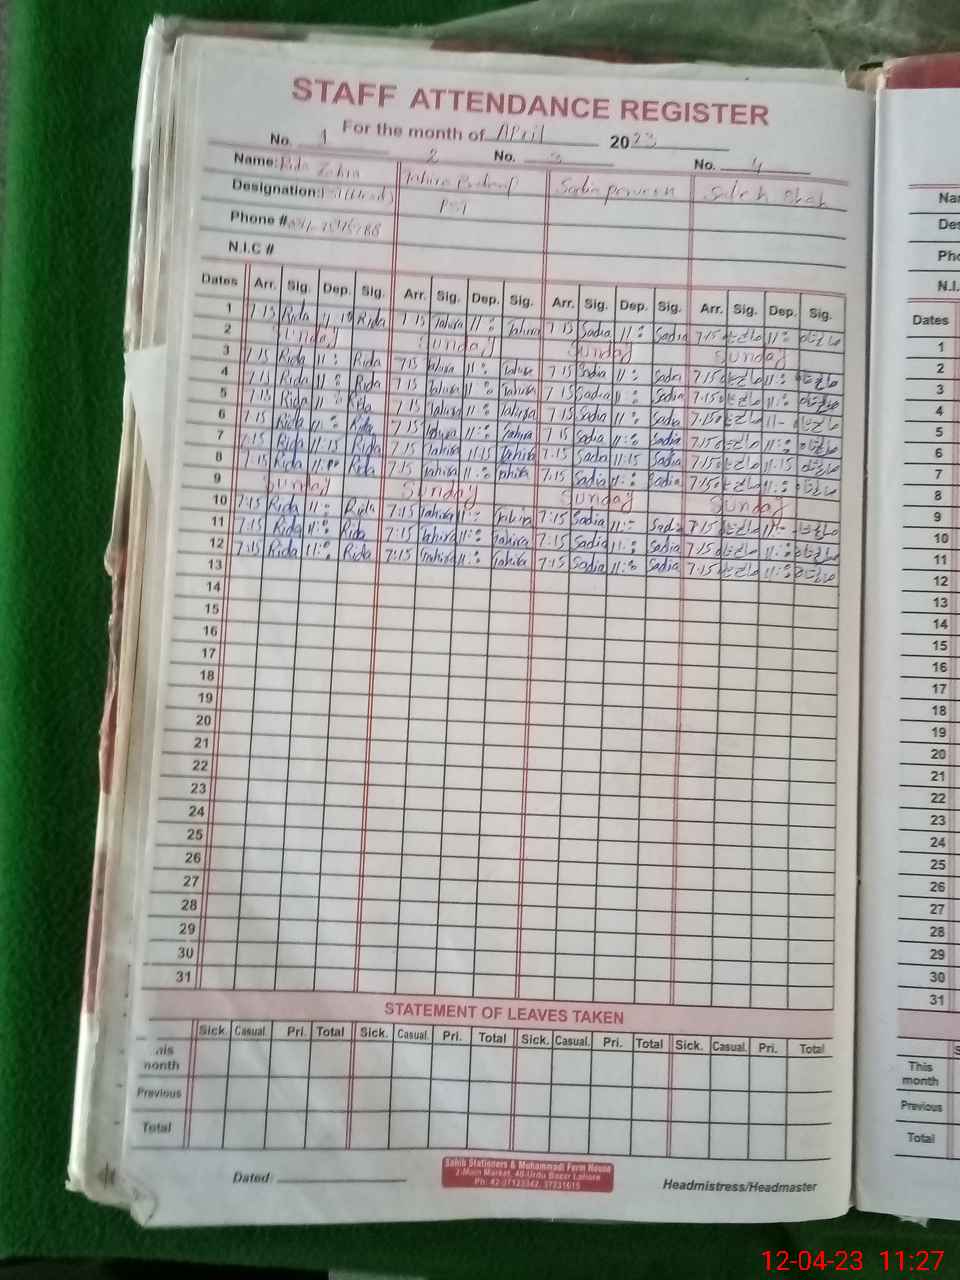 STAFF ATTENDANCE REGISTER
For the month of April 2023
No. 1 2 No. 3 No. 4
Name: Rida Zahra Tahira Sadia parveen
Designation: PST
Phone #
N.I.C #
Dates Arr. Sig. Dep. Sig. Arr. Sig. Dep. Sig. Arr. Sig. Dep. Sig. Arr. Sig. Dep. Sig.
1 7:15 Rida Rida 7 15 Tahira 11:00 Tahira 7 15 Sadia 11:00 Sadia 7:15 11:00
2 Sunday Sunday Sunday Sunday
3 7:15 Rida 11:00 Rida 7:15 Tahira 11:00 Tahira 7 15 Sadia 11:00 Sadia 7:15 11:00
4 7:15 Rida 11:00 Rida 7 15 Tahira 11:00 Tahira 7 15 Sadia 11:00 Sadia 7:15 11:00
5 7:15 Rida 11:00 Rida 7 15 Tahira 11:00 Tahira 7 15 Sadia 11:00 Sadia 7:15
6 7:15 Rida 11:00 Rida 7:15 Tahira 11:00 Tahira 7 15 Sadia 11:00 Sadia 7:15 11:00
7 7:15 Rida 11:15 Rida 7:15 Tahira 11:15 Tahira 7:15 Sadia 11:15 Sadia 7:15 11:15
8 7:15 Rida 11:00 Rida 7:15 Tahira 11:00 Tahira 7:15 Sadia 11:00 Sadia 7:15 11:00
9 Sunday Sunday Sunday Sunday
10 7:15 Rida 11:00 Rida 7:15 Tahira 11:00 Tahira 7:15 Sadia 11:00 Sadia 7:15
11 7:15 Rida 11:00 Rida 7:15 Tahira 11:00 Tahira 7:15 Sadia 11:00 Sadia 7:15 11:00
12 7:15 Rida 11:00 Rida 7:15 Tahira 11:00 Tahira 7:15 Sadia 11:00 Sadia 7:15 11:00
13
14
15
16
17
18
19
20
21
22
23
24
25
26
27
28
29
30
31
STATEMENT OF LEAVES TAKEN
Sick. Casual. Pri. Total Sick. Casual. Pri. Total Sick. Casual. Pri. Total Sick. Casual. Pri. Total
month
Previous
Total
Dated:
Sahib Stationers & Muhammadi Form House
2-Main Market, 40-Urdu Bazar Lahore
Ph: 42-37123342, 37231615
Headmistress/Headmaster
N.I.
Dates
1
2
3
4
5
6
7
8
9
10
11
12
13
14
15
16
17
18
19
20
21
22
23
24
25
26
27
28
29
30
31
This
month
Previous
Total
12-04-23 11:27